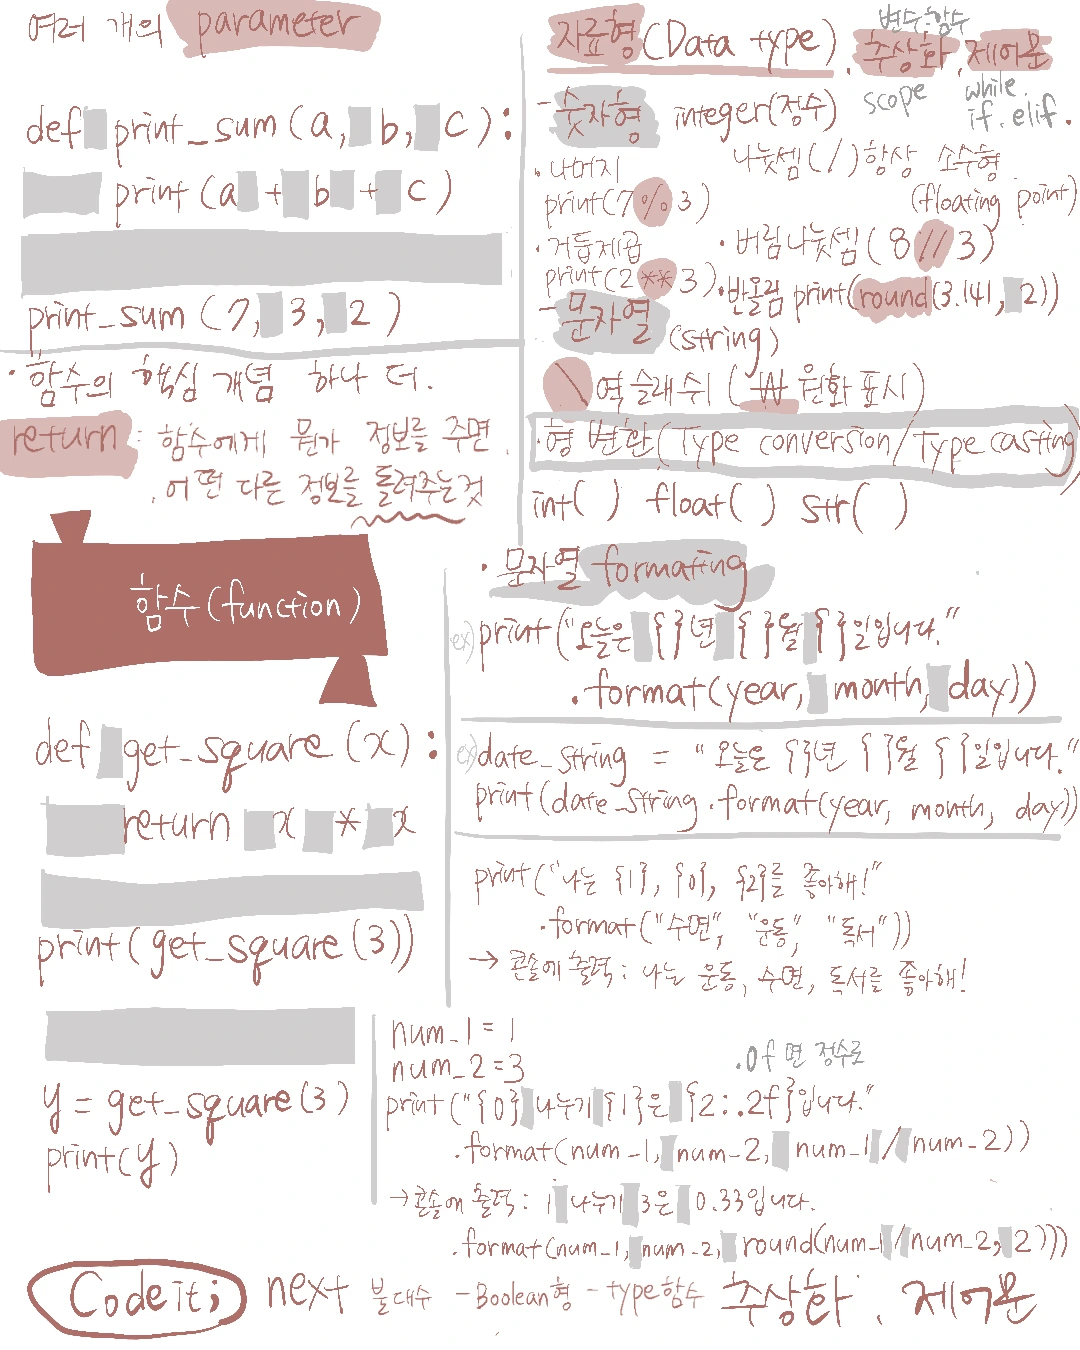 여러 개의 parameter
def print_sum (a, b, c):
print (a + b + c)
print_sum (7, 3, 2)
·함수의 핵심 개념 하나 더.
return : 함수에게 뭔가 정보를 주면,
어떤 다른 정보를 돌려주는것
함수(function)
def get_square (x) :
return x * x
print( get_square (3))
y = get_square (3)
print(y)
자료형(Data type). 추상화, 제어문
변수·함수
scope
while.
if. elif.
- 숫자형 integer(정수)
나눗셈(/)항상 소수형
(floating point)
·나머지
print(7%3)
·거듭제곱
print(2**3)
·버림나눗셈(8//3)
·반올림 print(round(3.141, 2))
- 문자열
(string)
\ 역슬래쉬 (₩ 원화표시)
·형 변환(Type conversion/Type casting)
int( ) float( ) str( )
·문자열 formating
ex) print("오늘은 { }년 { }월 { }일입니다."
.format(year, month, day))
ex) date_string = "오늘은 { }년 { }월 { }일입니다."
print(date_string.format(year, month, day))
print("나는 {1}, {0}, {2}를 좋아해!"
.format("수면", "운동", "독서"))
→ 콘솔에 출력 : 나는 운동, 수면, 독서를 좋아해!
num_1 = 1
num_2 = 3
.0f 면 정수로
print("{0} 나누기 {1}은 {2:.2f}입니다."
.format(num_1, num_2, num_1 / num_2))
→콘솔에 출력 : 1 나누기 3은 0.33입니다.
.format(num_1, num_2, round(num_1 / num_2, 2)))
Codeit; next 불대수 - Boolean형 - type함수 추상화, 제어문